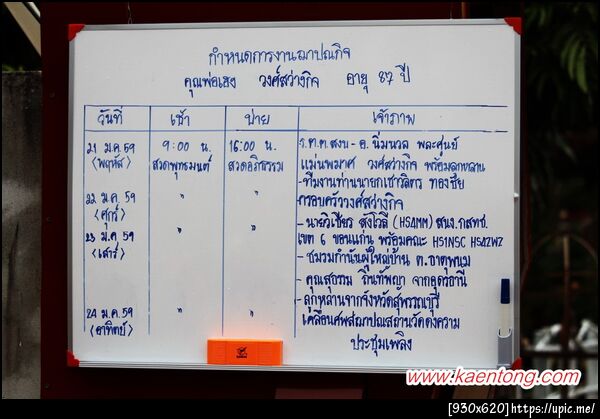 กำหนดการงานฌาปณกิจ
คุณพ่อเฮง วงศ์สว่างกิจ อายุ 87 ปี
วันที่ เช้า บ่าย เจ้าภาพ
21 ม.ค 59 9:00 น. 16:00 น. ร.ต.ต.สงบ - อ. นิ่มนวล พละศูนย์
<พฤหัส> สวดพุทธมนต์ สวดอภิธรรม แม่นพมาศ วงศ์สว่างกิจ พร้อมลูกหลาน
-ทีมงานท่านนายกเชาวลิตร ทองชัย
22 ม.ค 59 " " ครอบครัววงศ์สว่างกิจ
<ศุกร์>
23 ม.ค 59 " " - นายวิเชียร สุขโวลี (HS4MM) สนง.กสทช.
<เสาร์> เขต 6 ขอนแก่น พร้อมคณะ HS1NSC HS4ZWZ
- ชมรมกำนันผู้ใหญ่บ้าน ต.ธาตุพนม
- คุณสุธรรม ถิ่นทัพญา จากอุดรธานี
- ลูกหลานจากจังหวัดสุพรรณบุรี
24 ม.ค 59 " " เคลื่อนศพสู่ฌาปณสถานวัดดงความ
<อาทิตย์> ประชุมเพลิง
www.kaentong.com
[930x620]https://upic.me/